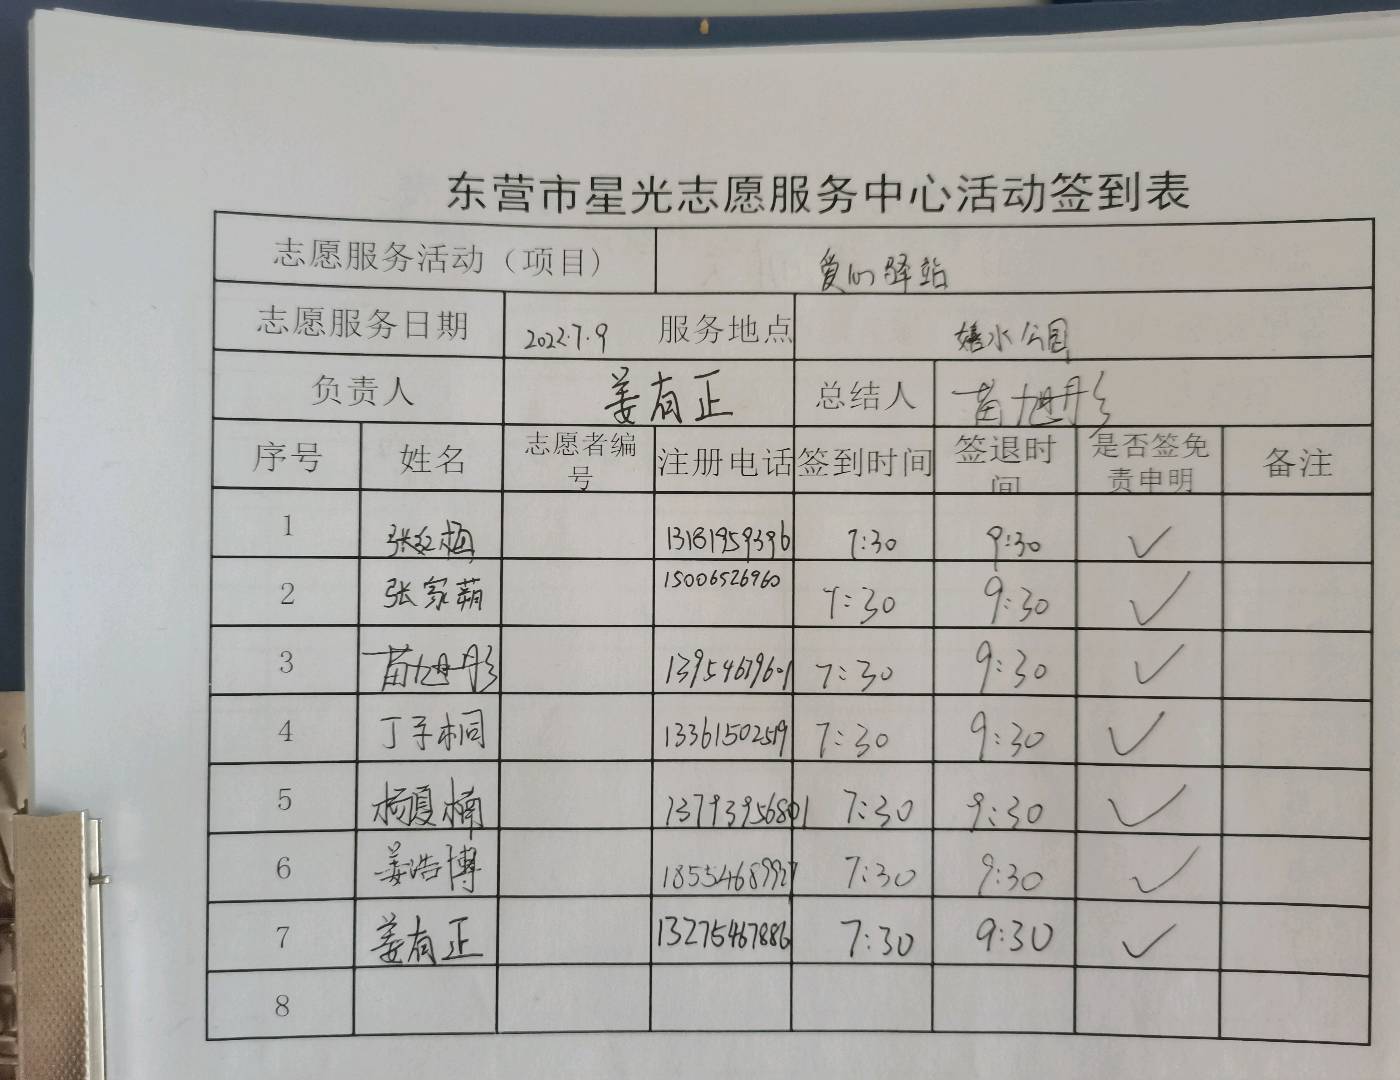 东营市星光志愿服务中心活动签到表
志愿服务活动（项目） 爱心驿站
志愿服务日期 2022.7.9 服务地点 嬉水公园
负责人 姜有正 总结人 苗旭彤
序号 姓名 志愿者编号 注册电话 签到时间 签退时间 是否签免责申明 备注
1 张红梅 13181959396 7:30 9:30 ✓
2 张家萌 15006526960 7:30 9:30 ✓
3 苗旭彤 7:30 9:30 ✓
4 丁子桐 13361502519 7:30 9:30 ✓
5 杨夏楠 13793956801 7:30 9:30 ✓
6 姜浩博 18554689927 7:30 9:30 ✓
7 姜有正 13275467886 7:30 9:30 ✓
8